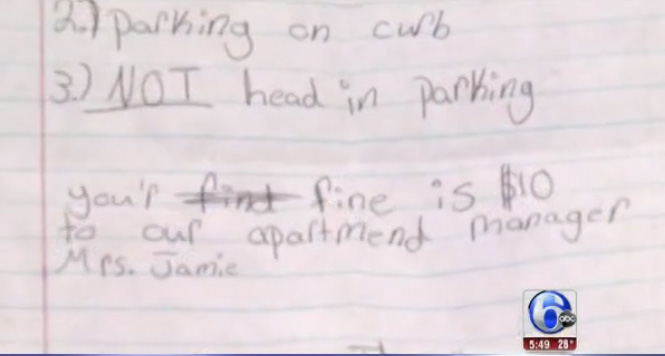 2.) parking on curb
3.) NOT head in parking
you'r find fine is $10
to our apartmend manager
Mrs. Jamie
6 abc
5:49 28°